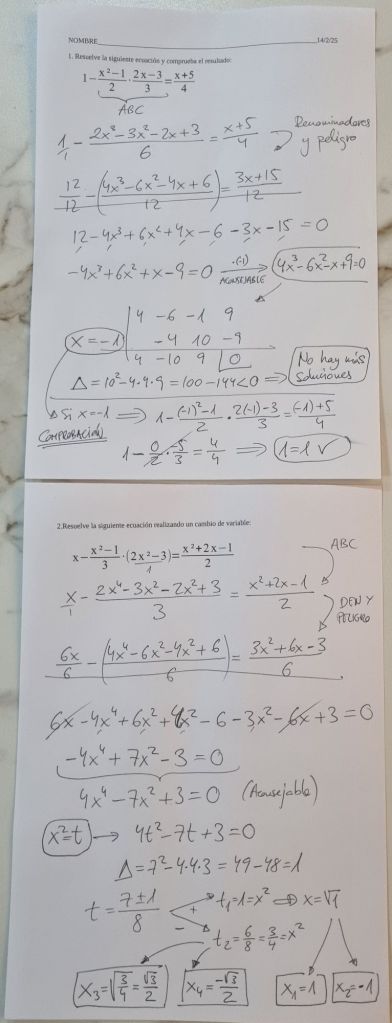 NOMBRE 14/2/25
1. Resuelve la siguiente ecuación y comprueba el resultado:
1 - (x²-1)/2 · (2x-3)/3 = (x+5)/4
ABC
1/1 - (2x³-3x²-2x+3)/6 = (x+5)/4
Denominadores
y peligro
12/12 - (4x³-6x²-4x+6)/12 = (3x+15)/12
12-4x³+6x²+4x-6-3x-15=0
-4x³+6x²+x-9=0 ·(-1) ACONSEJABLE 4x³-6x²-x+9=0
4 -6 -1 9
x=-1 -4 10 -9
4 -10 9 0
Δ=10²-4·4·9=100-144<0 ⇒ No hay más
soluciones
Si x=-1 ⇒ 1 - ((-1)²-1)/2 · (2(-1)-3)/3 = ((-1)+5)/4
COMPROBACIÓN
1 - 0/2 · -5/3 = 4/4 ⇒ 1=1 ✓
2.Resuelve la siguiente ecuación realizando un cambio de variable:
x - (x²-1)/3 · (2x²-3)/1 = (x²+2x-1)/2
ABC
x/1 - (2x⁴-3x²-2x²+3)/3 = (x²+2x-1)/2
DEN Y
PELIGRO
6x/6 - (4x⁴-6x²-4x²+6)/6 = (3x²+6x-3)/6
6x-4x⁴+6x²+4x²-6-3x²-6x+3=0
-4x⁴+7x²-3=0
4x⁴-7x²+3=0 (Aconsejable)
x²=t → 4t²-7t+3=0
Δ=7²-4·4·3=49-48=1
t=(7±1)/8 + t₁=1=x² ⇒ x=√1
- t₂=6/8=3/4=x²
x₃=√(3/4)=√3/2 x₄=-√3/2 x₁=1 x₂=-1